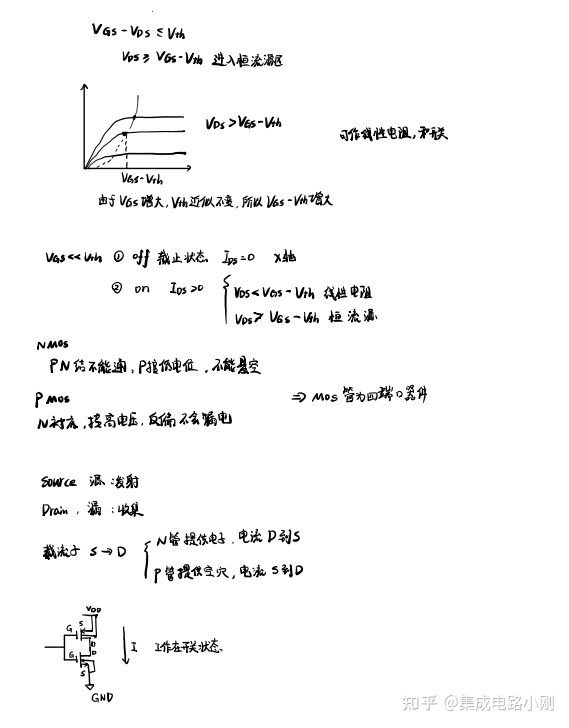 VGS-VDS≤Vth
VDS≥VGS-Vth 进入恒流源区
VDS>VGS-Vth
可作线性电阻,和开关
VGS-Vth
由于VGS增大,Vth近似不变,所以VGS-Vth增大
VGS<<Vth ① off 截止状态. IDS=0 X轴
② on IDS>0
VDS<VGS-Vth 线性电阻
VDS>VGS-Vth 恒流源
NMOS
PN结不能通,P接低电位,不能悬空
PMOS
⇒ MOS管为四端口器件
N衬底,接高电压,反偏不会漏电
Source 源:发射
Drain,漏:收集
载流子 S→D
N管提供电子.电流D到S
P管提供空穴,电流S到D
VDD
S
G
D
D
G
S
I 工作在开关状态.
GND
知乎 @集成电路小刚